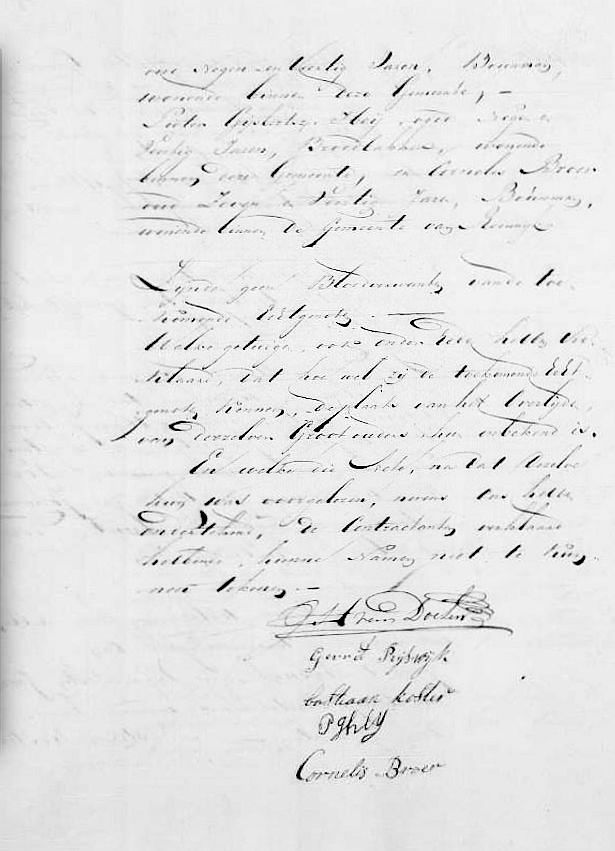 oud negen en veertig Jaren, Bouwman,
wonende binnen deze Gemeente, —
Pieter Heij, oud negen en
Jaren, Broodbakker, wonende
binnen deze Gemeente, en Cornelis Broer
oud Zeven en Jaren, Bouwman,
wonende binnen de Gemeente van Reeuwijk
Zijnde geen Bloedverwanten van de toe-
komende Echtgenoten. —
Welke getuigen, ook onder Eede hebben ver-
klaard, dat hoe wel zij de toekomende Echt-
genoten kennen, de plaats van het Overlijden
van derzelver Groot ouders hun onbekend is.
En welke die Acte, na dat dezelve
hun was voorgelezen, nevens ons hebben
onderteekend, de Contractanten verklaard
hebbende, hunne Namen niet te kun-
nen tekenen. —
van Doelen
Gerrit Rijswijk
bastiaan koster
P G heij
Cornelis Broer